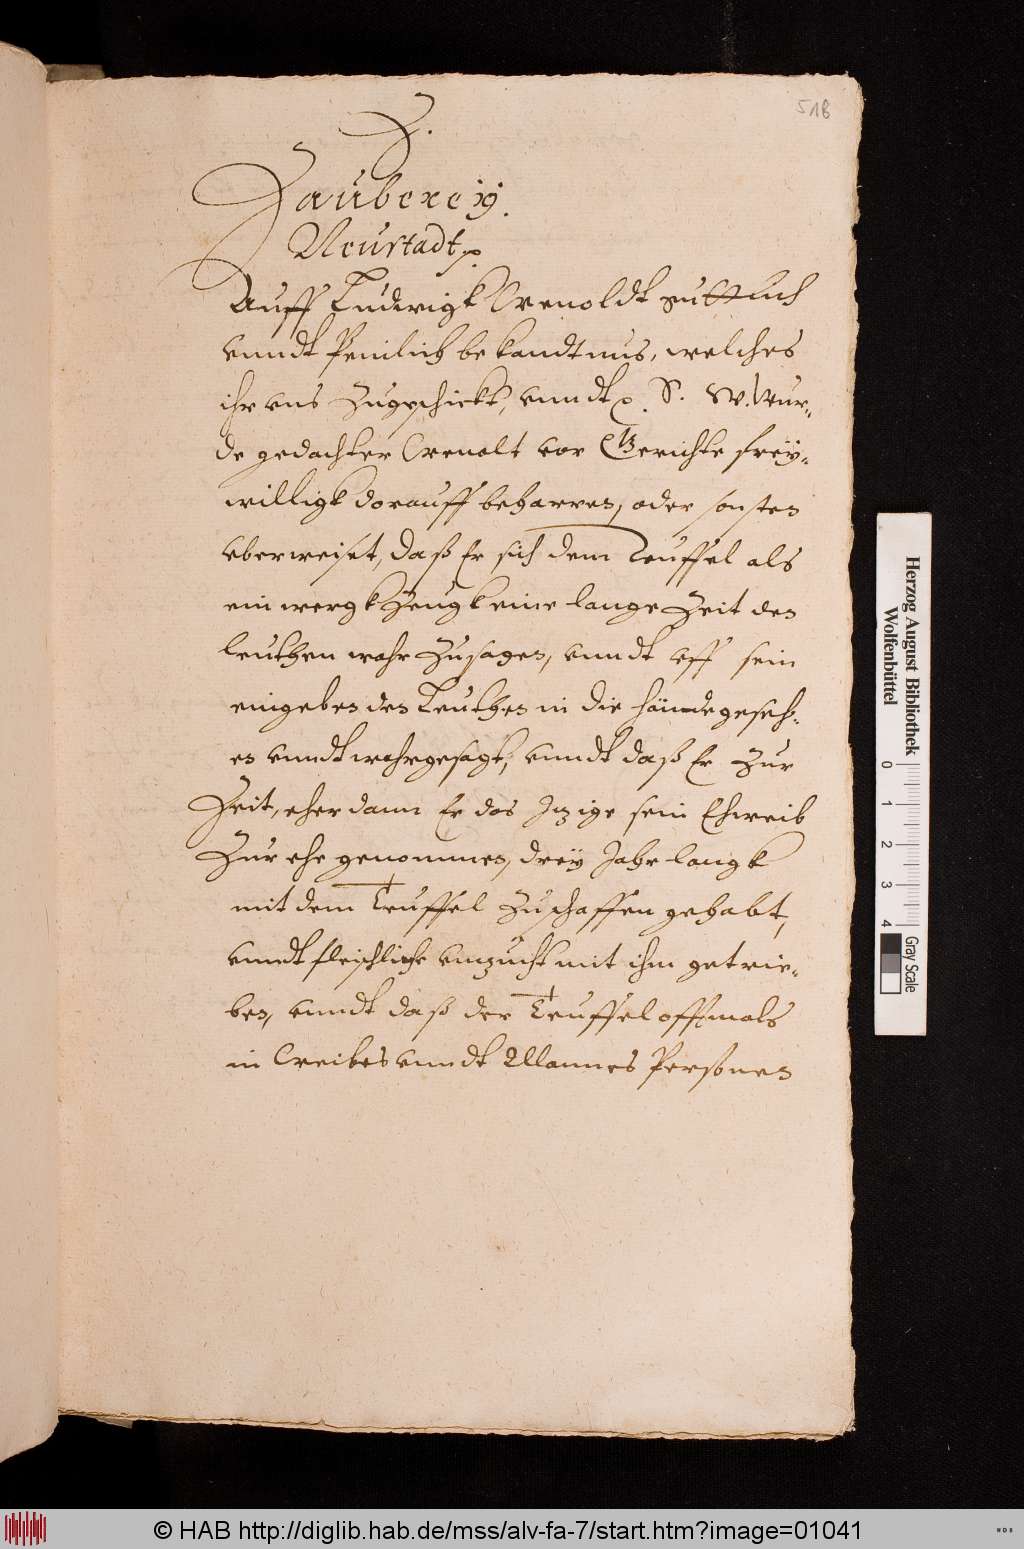 518
Z.
Zauberey.
Neustadt.
Auff Ludwigk Arenoldt guttlich
vnndt Peinlich bekandtnus, welches
ihr vns Zugeschickt, vnndt p. S. W. Wur-
de gedachter Arenolt vor Gerichte frey-
willigk dorauff beharren, oder sonsten
vberweiset, daß Er sich dem Teuffel als
ein wergkZeugk eine lange Zeit den
leuthen wahr Zusagen, vnndt vff sein
eingeben den Leuthen in die hände geseh-
en vnndt wahrgesagt, vnndt daß Er Zur
Zeit, eher dann Er das Itzige sein Eheweib
Zur ehe genommen, drey Jahr langk
mit dem Teuffel Zuschaffen gehabt,
vnndt fleischliche vnzucht mit ihm getrie-
ben, vnndt daß der Teuffel offtmals
in Weibes vnndt Mannes Persohnen
Herzog August Bibliothek
Wolfenbüttel
0 1 2 3 4
Gray Scale
© HAB http://diglib.hab.de/mss/alv-fa-7/start.htm?image=01041